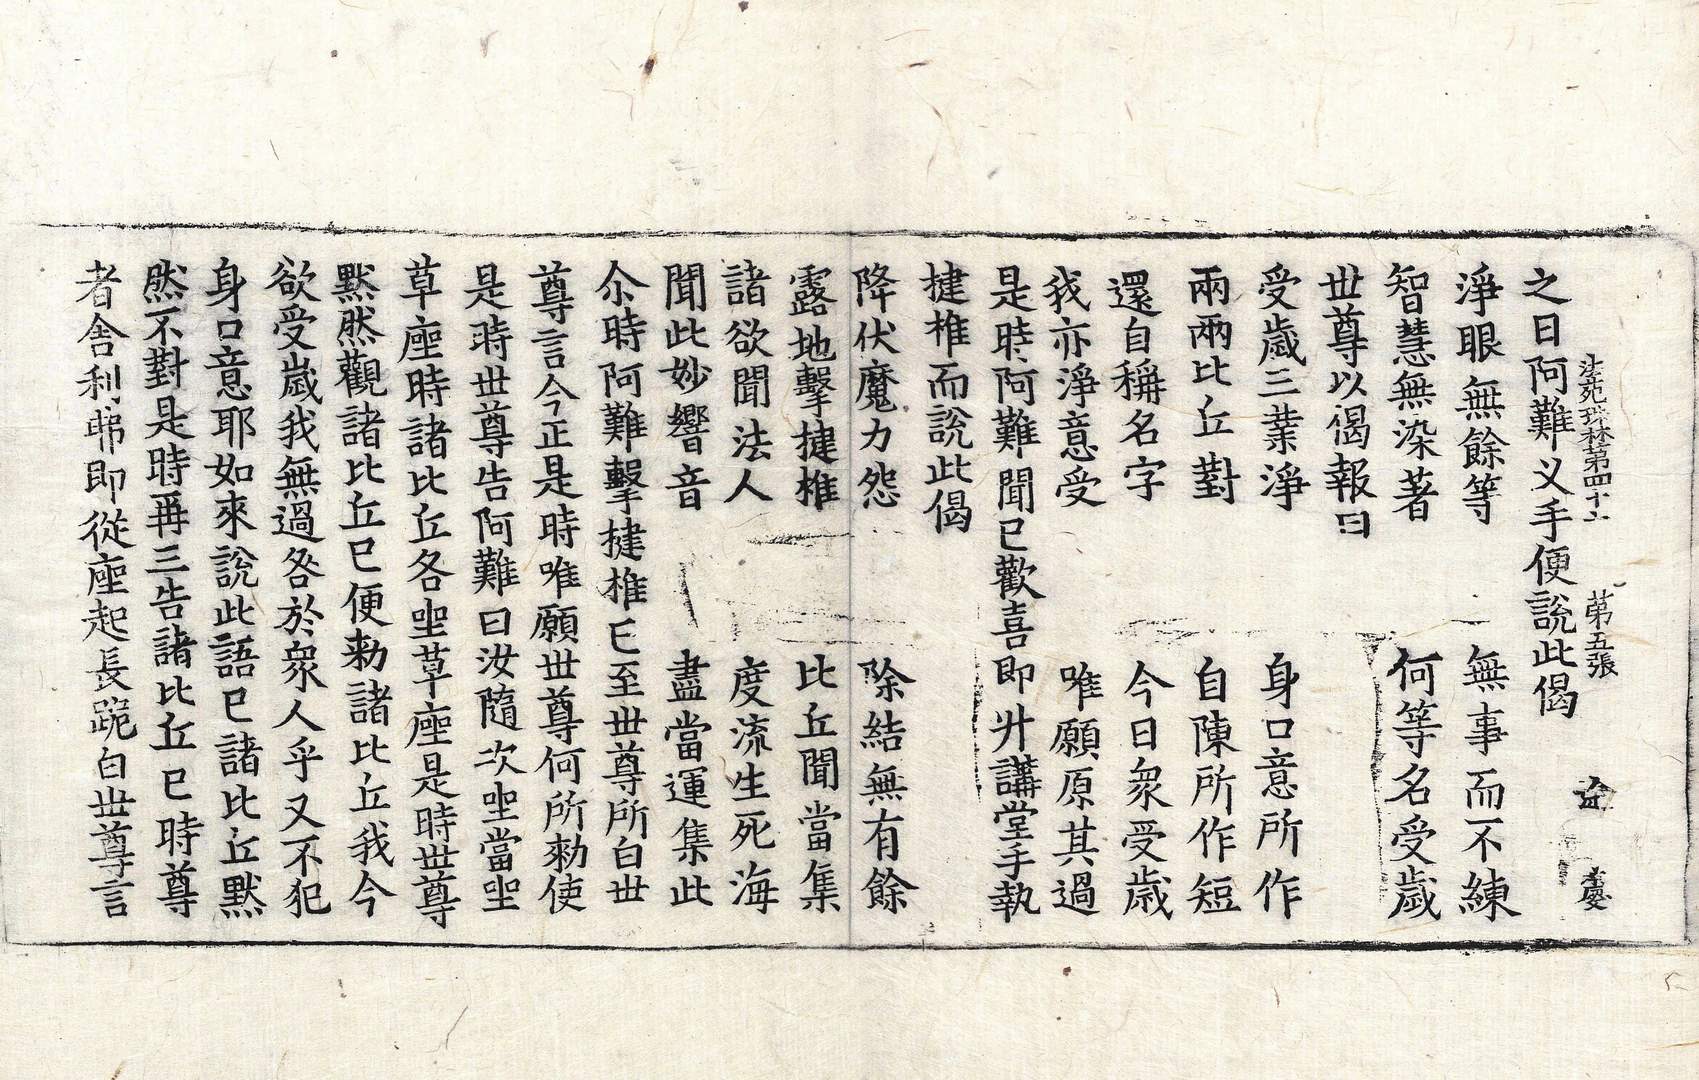 法苑珠林第四十二 第五張
之日阿難义手便說此偈
淨眼無餘等 無事而不練
智慧無染著 何等名受歲
世尊以偈報曰
受歲三業淨 身口意所作
兩兩比丘對 自陳所作短
還自稱名字 今日衆受歲
我亦淨意受 唯願原其過
是時阿難聞已歡喜即升講堂手執
揵椎而說此偈
降伏魔力怨 除結無有餘
露地擊揵椎 比丘聞當集
諸欲聞法人 度流生死海
聞此妙響音 盡當運集此
尒時阿難擊揵椎已至世尊所白世
尊言今正是時唯願世尊何所勑使
是時世尊告阿難曰汝隨次坐當坐
草座時諸比丘各坐草座是時世尊
黙然觀諸比丘已便勑諸比丘我今
欲受歲我無過咎於衆人乎又不犯
身口意耶如來說此語已諸比丘黙
然不對是時再三告諸比丘已時尊
者舍利弗即從座起長跪白世尊言